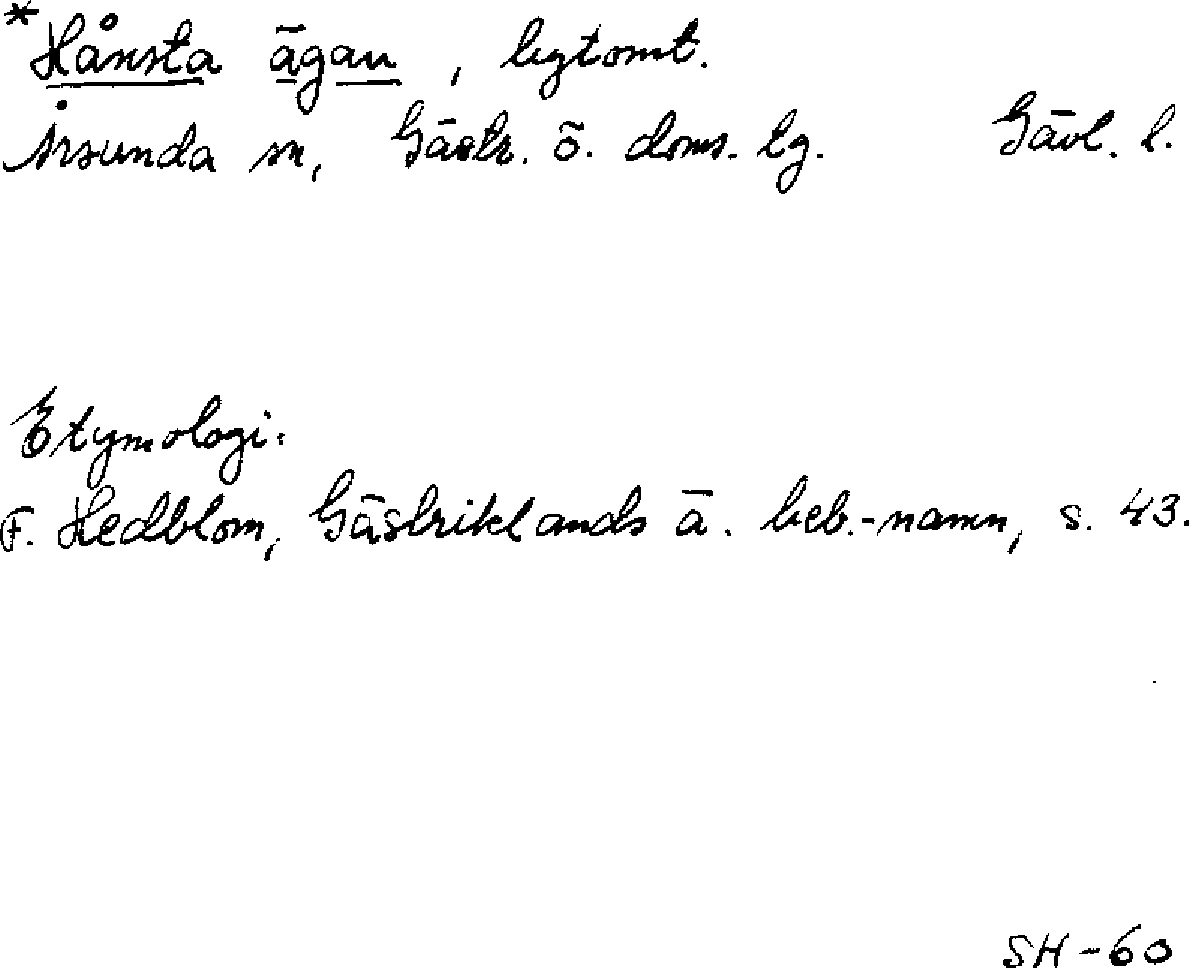 *Hånsta ägan, bytomt.
Årsunda sn, Gästr. ö. doms. lg. Gävl. l.
Etymologi:
F. Hedblom, Gästriklands ä. beb.-namn, s. 43.
SH-60